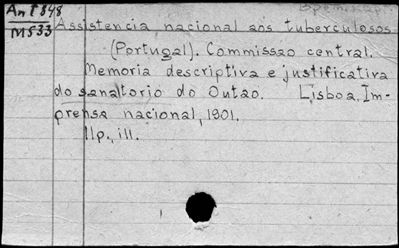 AnT848
M533
Assistencia nacional aos tuberculosos.
(Portugal). Commissao central.
Memoria descriptiva e justificativa
do sanaltorio do Outao. Lisboa, Im-
prensa nacional, 1901.
11p, ill.